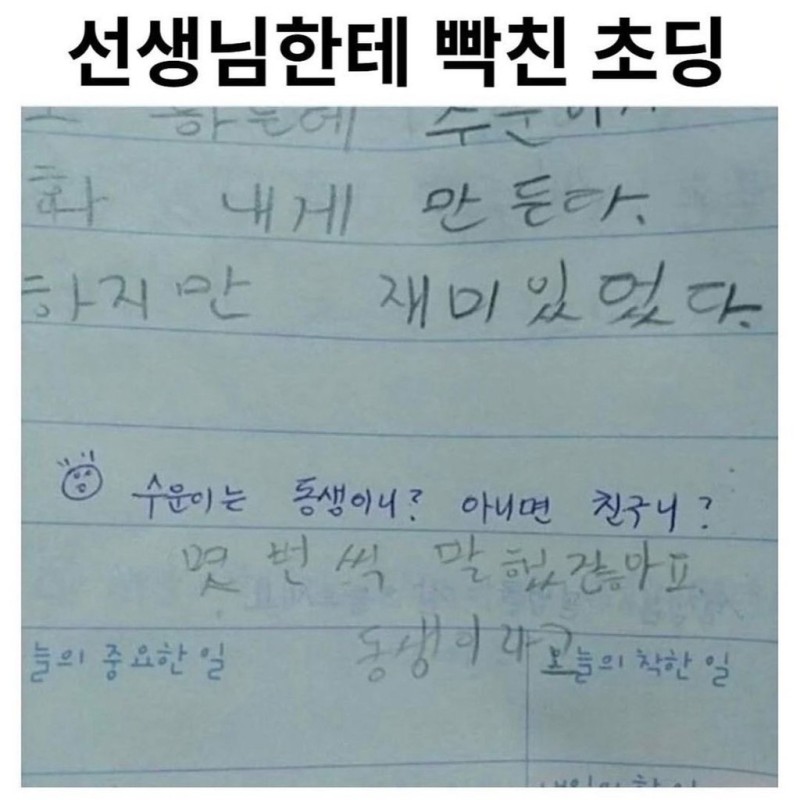 선생님한테 빡친 초딩
하는데 수운이가
화 내게 만든다.
하지만 재미있었다.
수운이는 동생이니? 아니면 친구니?
몇 번씩 말했잖아요
동생이라고
늘의 중요한 일 오늘의 착한 일